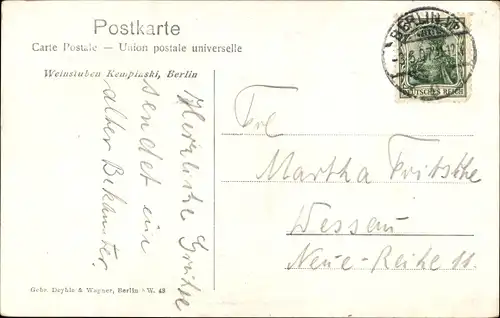 Postkarte
Carte Postale — Union postale universelle
Weinstuben Kempinski, Berlin
Herzliche Grüsse
sendet ein
alter Bekannter.
BERLIN
DEUTSCHES REICH
Frl.
Martha Fritsche
Dessau
Neue-Reihe 11.
Gebr. Dayhle & Wagner, Berlin S.W. 48